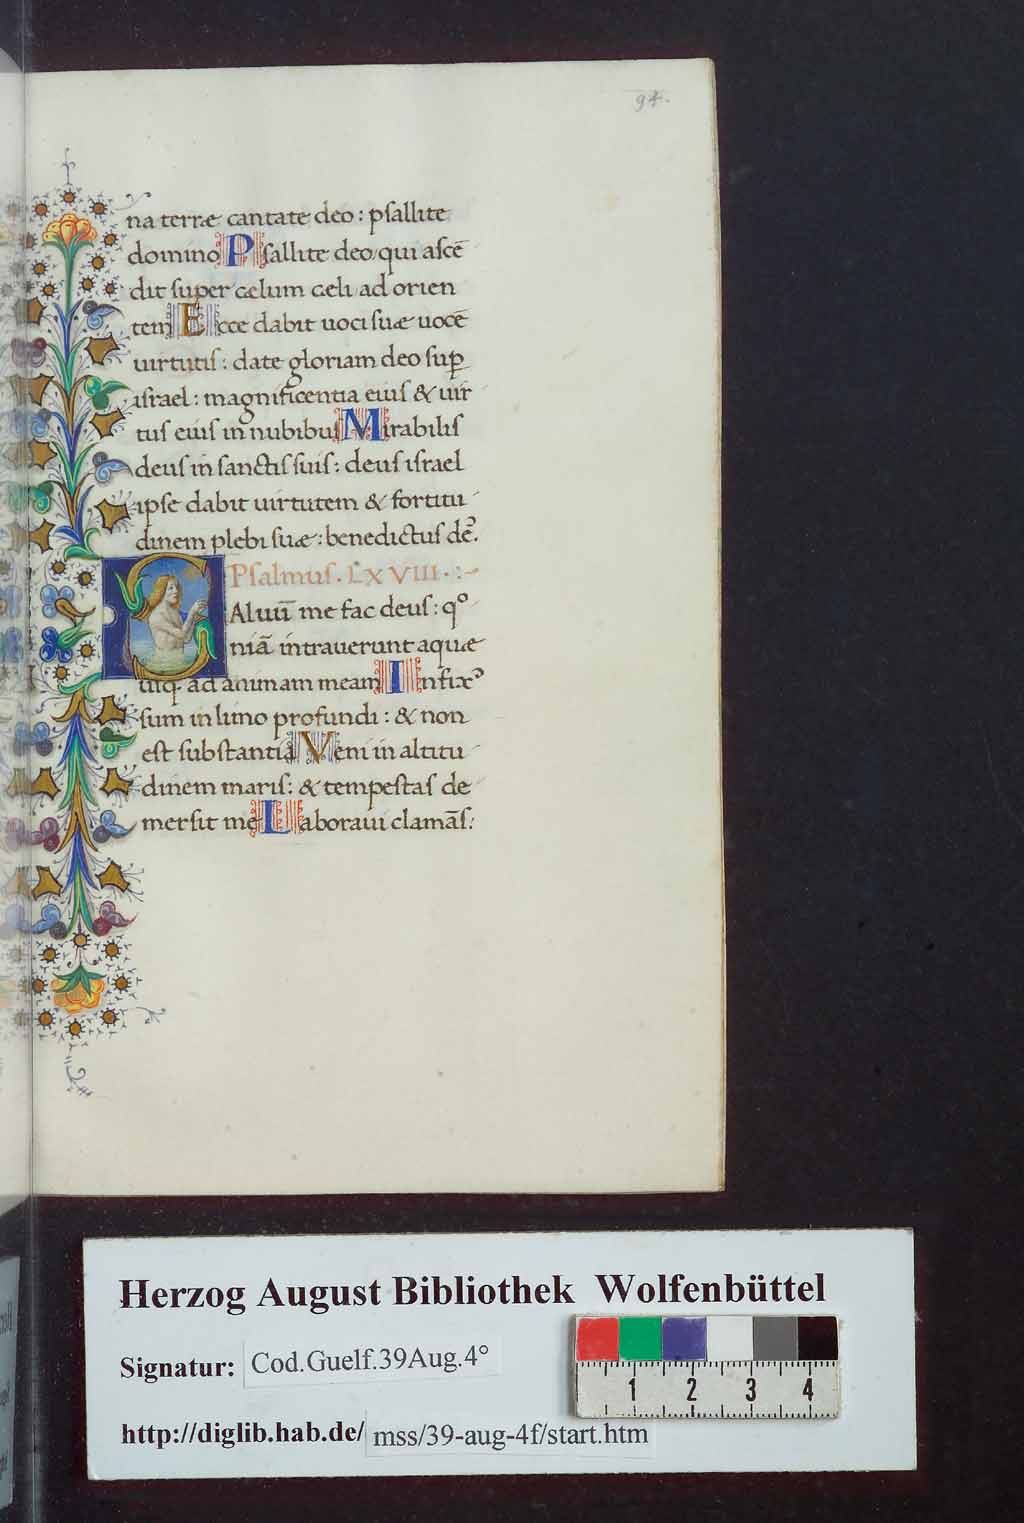 94.
na terræ cantate deo : psallite
domino Psallite deo qui ascē
dit super celum celi ad orien
tem Ecce dabit uoci suæ uocē
uirtutis : date gloriam deo sup̲
israel : magnificentia eius & uir
tus eius in nubibus Mirabilis
deus in sanctis suis : deus israel
ipse dabit uirtutem & fortitu
dinem plebi suæ : benedictus de᷒.
Psalmus . LXVIII . :~
SAluū me fac deus : qº
niā intrauerunt aquæ
usq. ad animam meam Infix᷒
sum in limo profundi : & non
est substantia Veni in altitu
dinem maris : & tempestas de
mersit me Laboraui clamās :
Herzog August Bibliothek Wolfenbüttel
Signatur: Cod.Guelf.39Aug.4°
http://diglib.hab.de/mss/39-aug-4f/start.htm
1 2 3 4